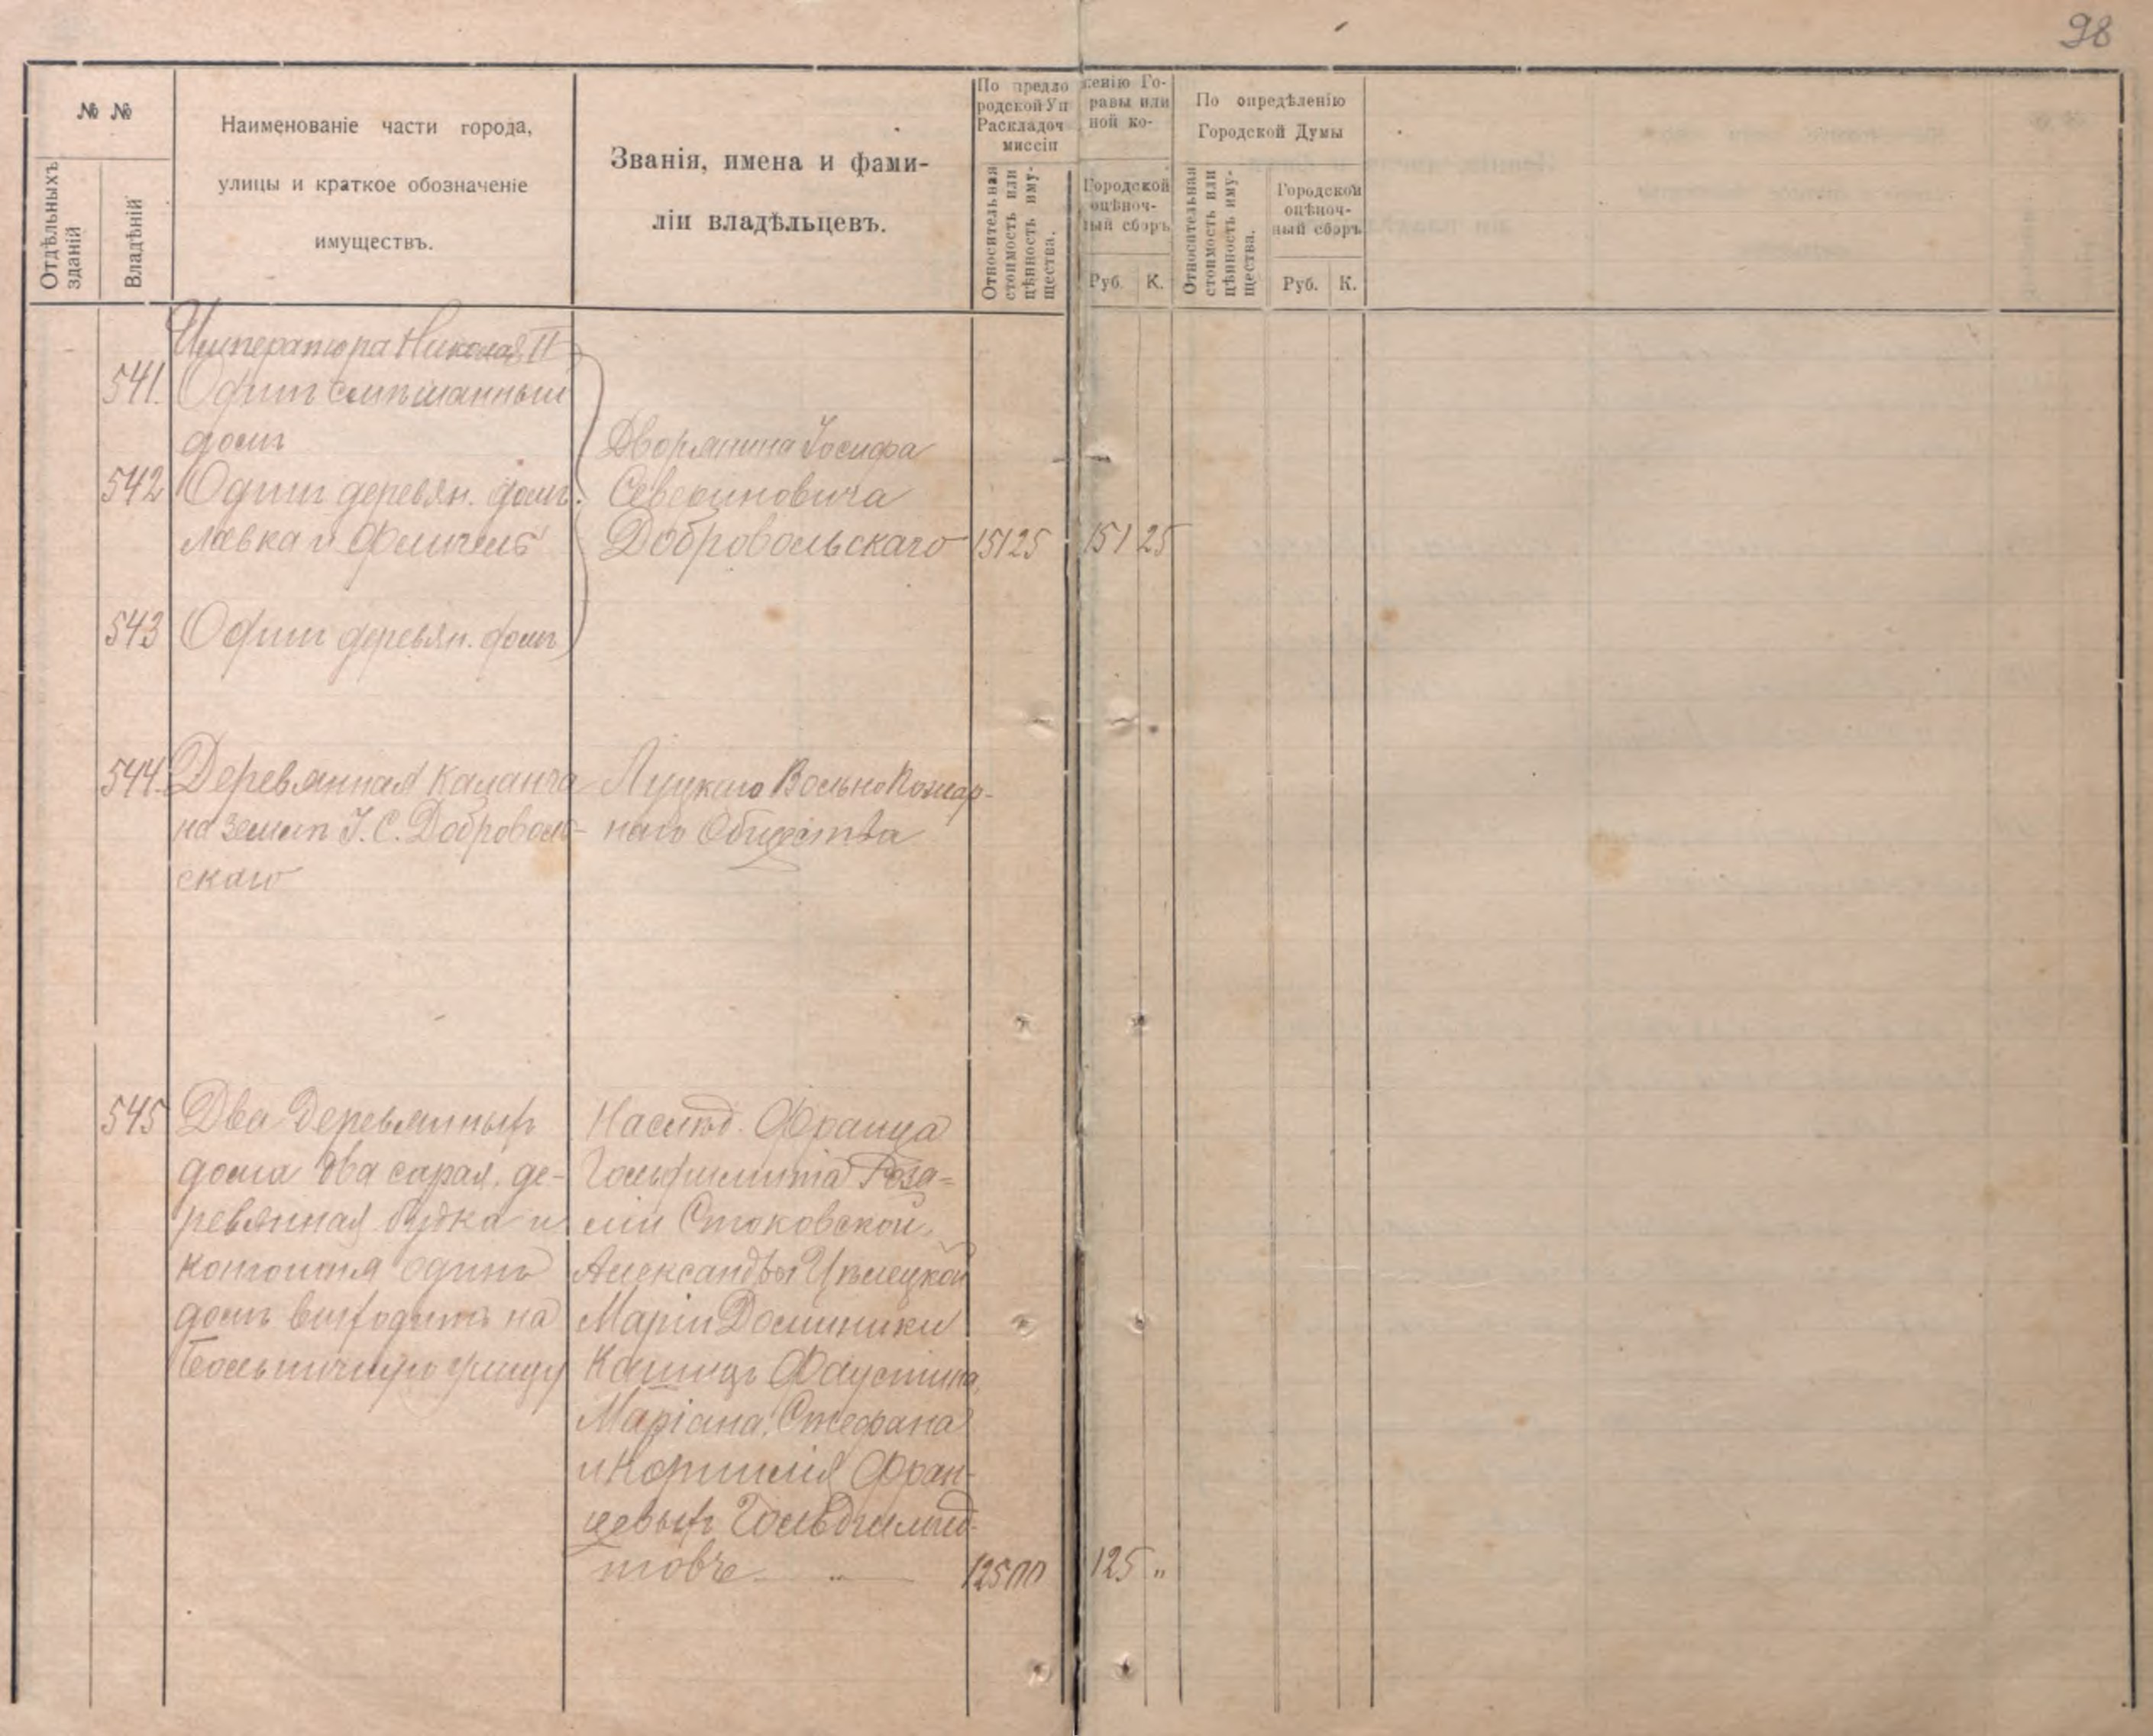 98
№ №
Отдѣльныхъ зданій
Владѣній
Наименованіе части города,
улицы и краткое обозначеніе
имуществъ.
Званія, имена и фами-
ліи владѣльцевъ.
По предло женію Го-
родской Уп равы или
Раскладоч ной ко-
миссіи
Относительная
стоимость или
цѣнность иму-
щества.
Городской
оцѣноч-
ный сборъ
Руб. К.
По опредѣленію
Городской Думы
Относительная
стоимость или
цѣнность иму-
щества.
Городской
оцѣноч-
ный сборъ
Руб. К.
Императора Николая II
541. Одинъ смѣшанный
домъ
542 Одинъ деревян. домъ
лавка и флигель
543 Одинъ деревян. домъ
Дворянина Іосифа
Севериновича
Добровольскаго 15125 151 25
544. Деревянная каланча
на землѣ І. С. Доброволь-
скаго
Луцкаго Вольно Пожар-
наго Общества
545 Два деревянныхъ
дома два сарая, де-
ревянная будка и
конюшня одинъ
домъ выходитъ на
Больничную улицу
Наслѣд. Франца
Гольдшмита Роза-
ліи Стоковской,
Александры
Маріи Доминики
Фаустина,
Маріана, Стефана
и Корнилія Фран-
цевыхъ Гольдшмид-
товъ 12500 125 „